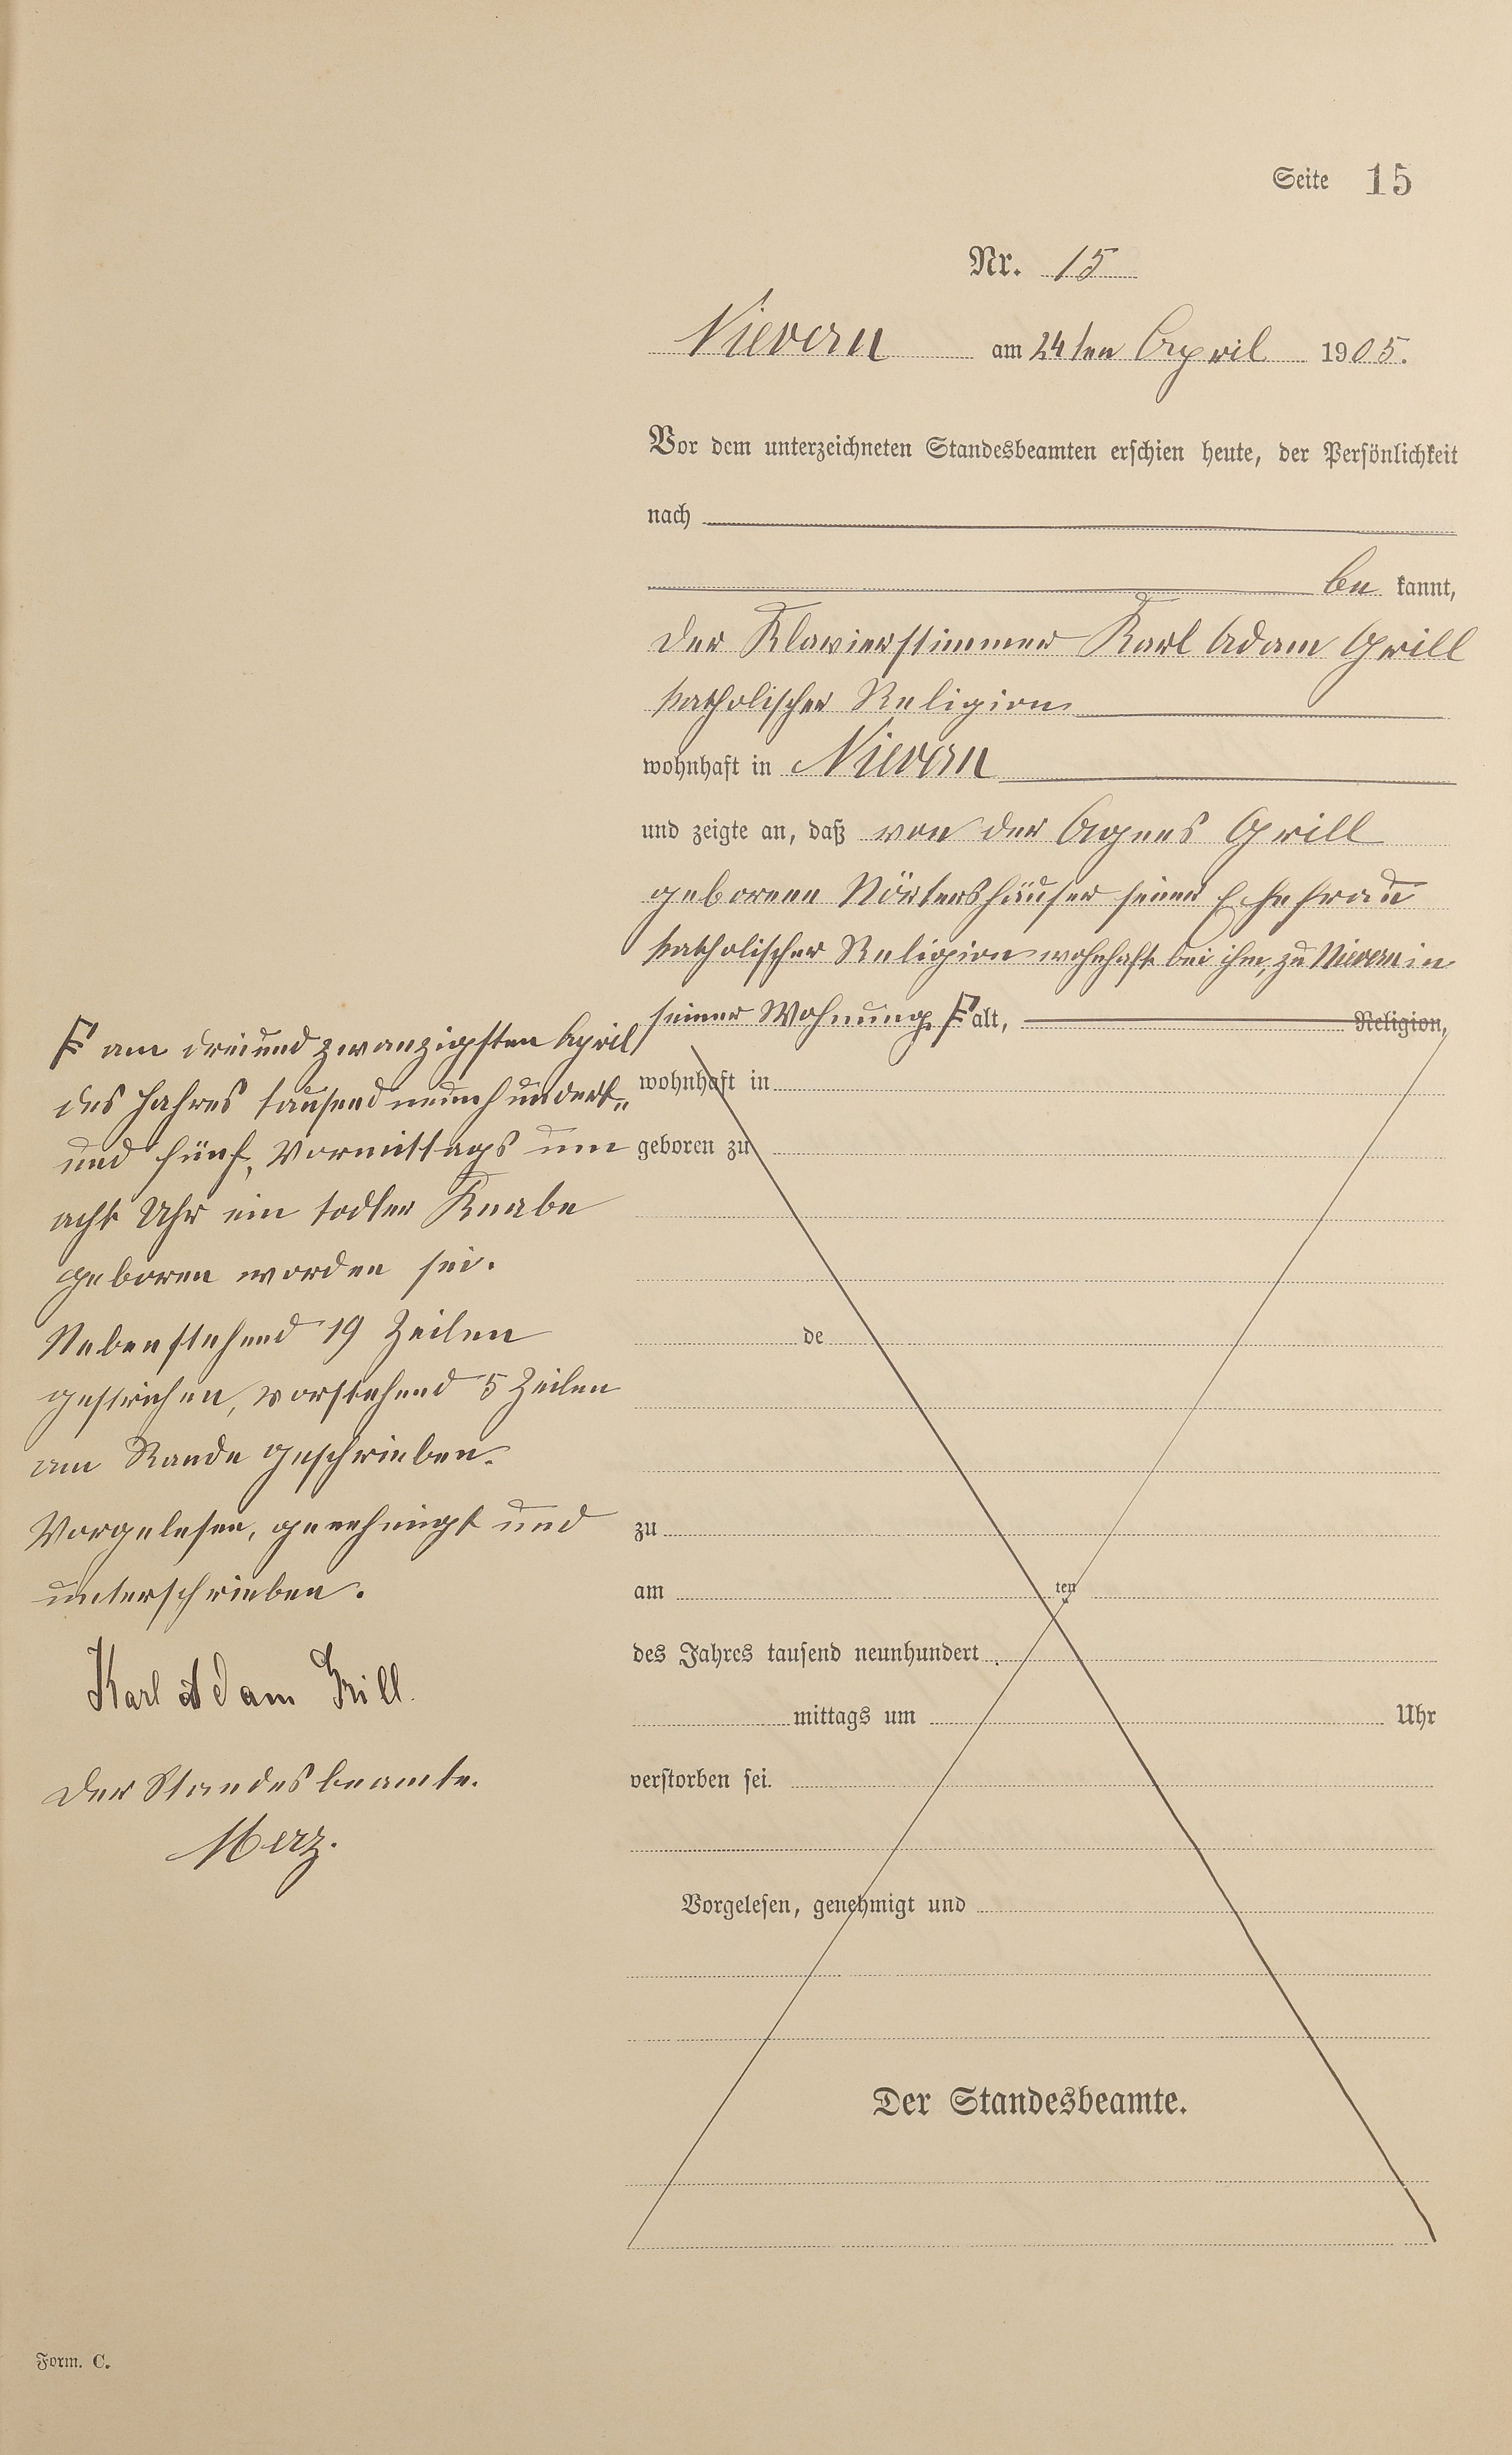 Seite 15
Nr. 15
Nievern am 24ten April 1905.
Vor dem unterzeichneten Standesbeamten erschien heute, der Persönlichkeit
nach
be kannt,
der Klavierstimmer Karl Adam Grill
katholischer Religion
wohnhaft in Nievern
und zeigte an, daß von der Agnes Grill
geborene Nörtershäuser seiner Ehefrau
katholischer Religion wohnhaft bei ihm, zu Nievern in
seiner Wohnung. F alt, Religion,
wohnhaft in
geboren zu
de
zu
am ten
des Jahres tausend neunhundert
mittags um Uhr
verstorben sei.
Vorgelesen, genehmigt und
Der Standesbeamte.
F am dreiundzwanzigsten April
des Jahres tausend neunhundert„
und fünf, Vormittags um
acht Uhr ein todter Knabe
geboren worden sei.
Nebenstehend 19 Zeilen
gestrichen, vorstehend 5 Zeilen
am Rande geschrieben.
Vorgelesen, genehmigt und
unterschrieben.
Karl Adam Grill.
Der Standesbeamte.
Merz.
Form. C.